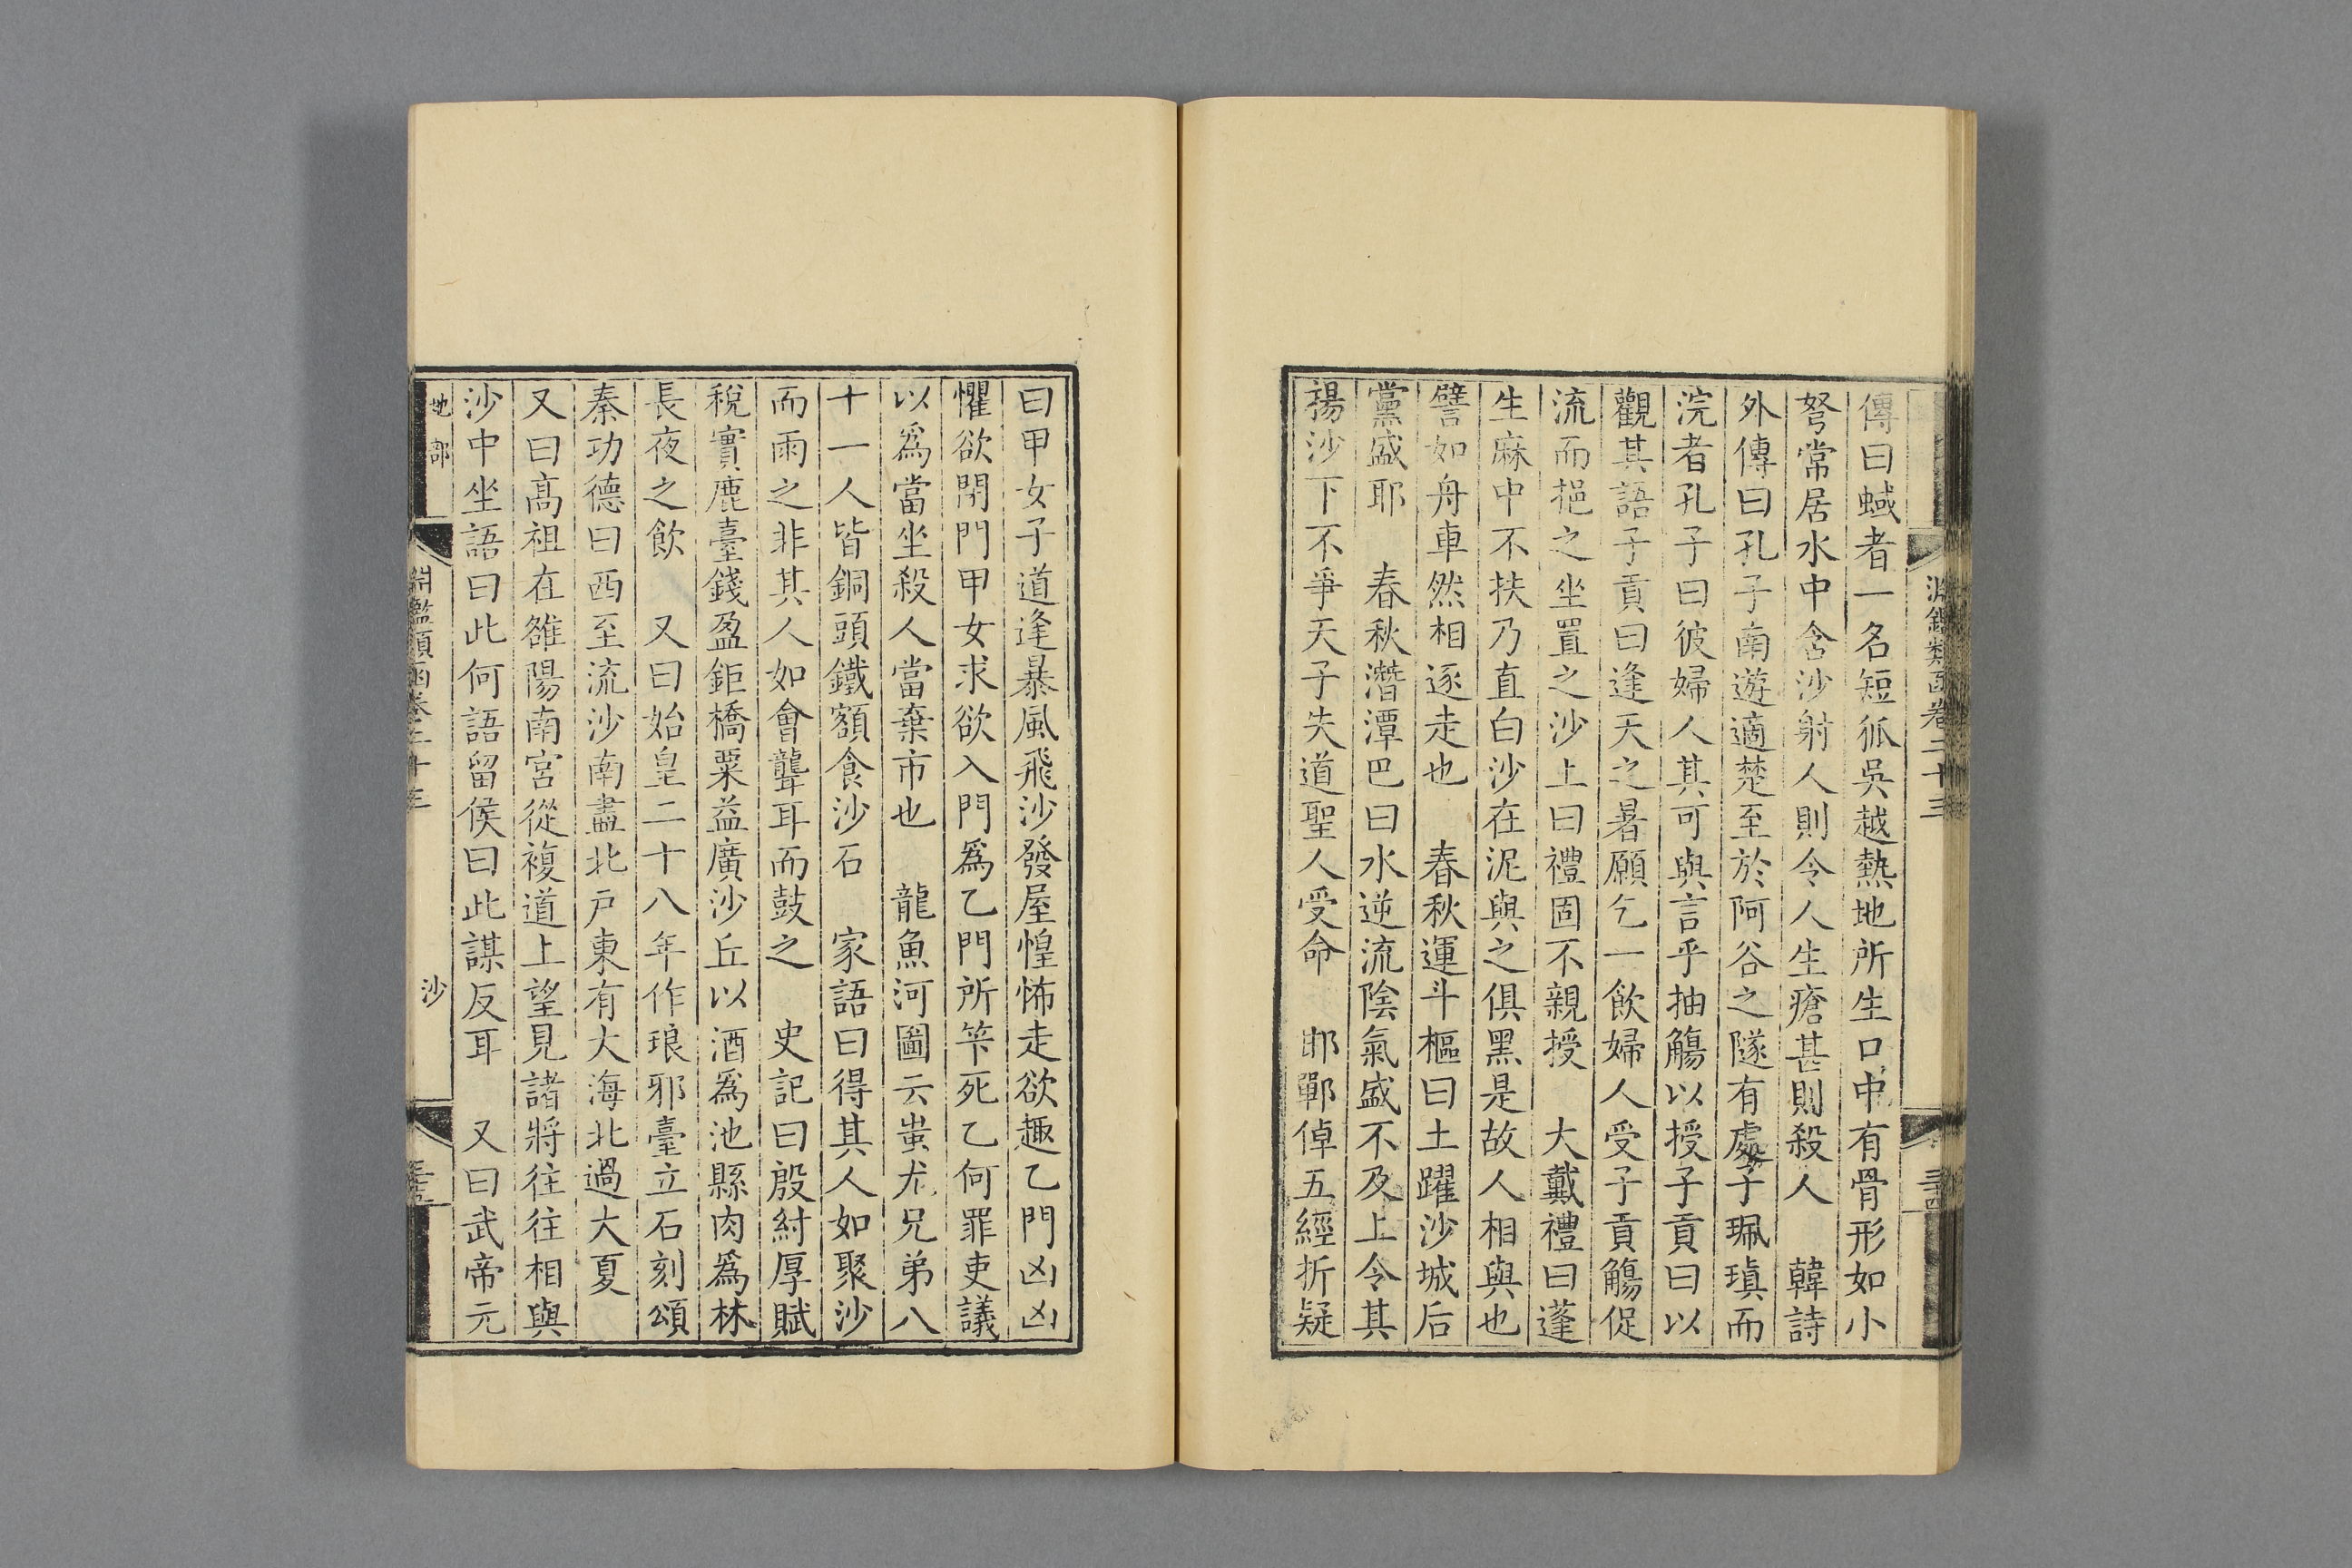 淵鑑類函卷二十三
傳曰蜮者一名短狐吳越熱地所生口中有骨形如小
弩常居水中含沙射人則令人生瘡甚則殺人　韓詩
外傳曰孔子南遊適楚至於阿谷之隧有處子珮瑱而
浣者孔子曰彼婦人其可與言乎抽觴以授子貢曰以
觀其語子貢曰逢天之暑願乞一飲婦人受子貢觴促
流而挹之坐置之沙上曰禮固不親授　大戴禮曰蓬
生麻中不扶乃直白沙在泥與之俱黑是故人相與也
譬如舟車然相逐走也　春秋運斗樞曰土躍沙城后
黨盛耶　春秋潛潭巴曰水逆流陰氣盛不及上令其
揚沙下不爭天子失道聖人受命　邯鄲倬五經折疑
曰甲女子道逢暴風飛沙發屋惶怖走欲趣乙門凶凶
懼欲閉門甲女求欲入門為乙門所笮死乙何罪吏議
以為當坐殺人當棄市也　龍魚河圖云蚩尤兄弟八
十一人皆銅頭鐵額食沙石　家語曰得其人如聚沙
而雨之非其人如會聾耳而鼓之　史記曰殷紂厚賦
稅實鹿臺錢盈鉅橋粟益廣沙丘以酒為池縣肉為林
長夜之飲　又曰始皇二十八年作琅邪臺立石刻頌
秦功德曰西至流沙南盡北戶東有大海北過大夏
又曰高祖在雒陽南宮從複道上望見諸將往往相與
沙中坐語曰此何語留侯曰此謀反耳　又曰武帝元
地部
淵鑑類函卷二十三
沙